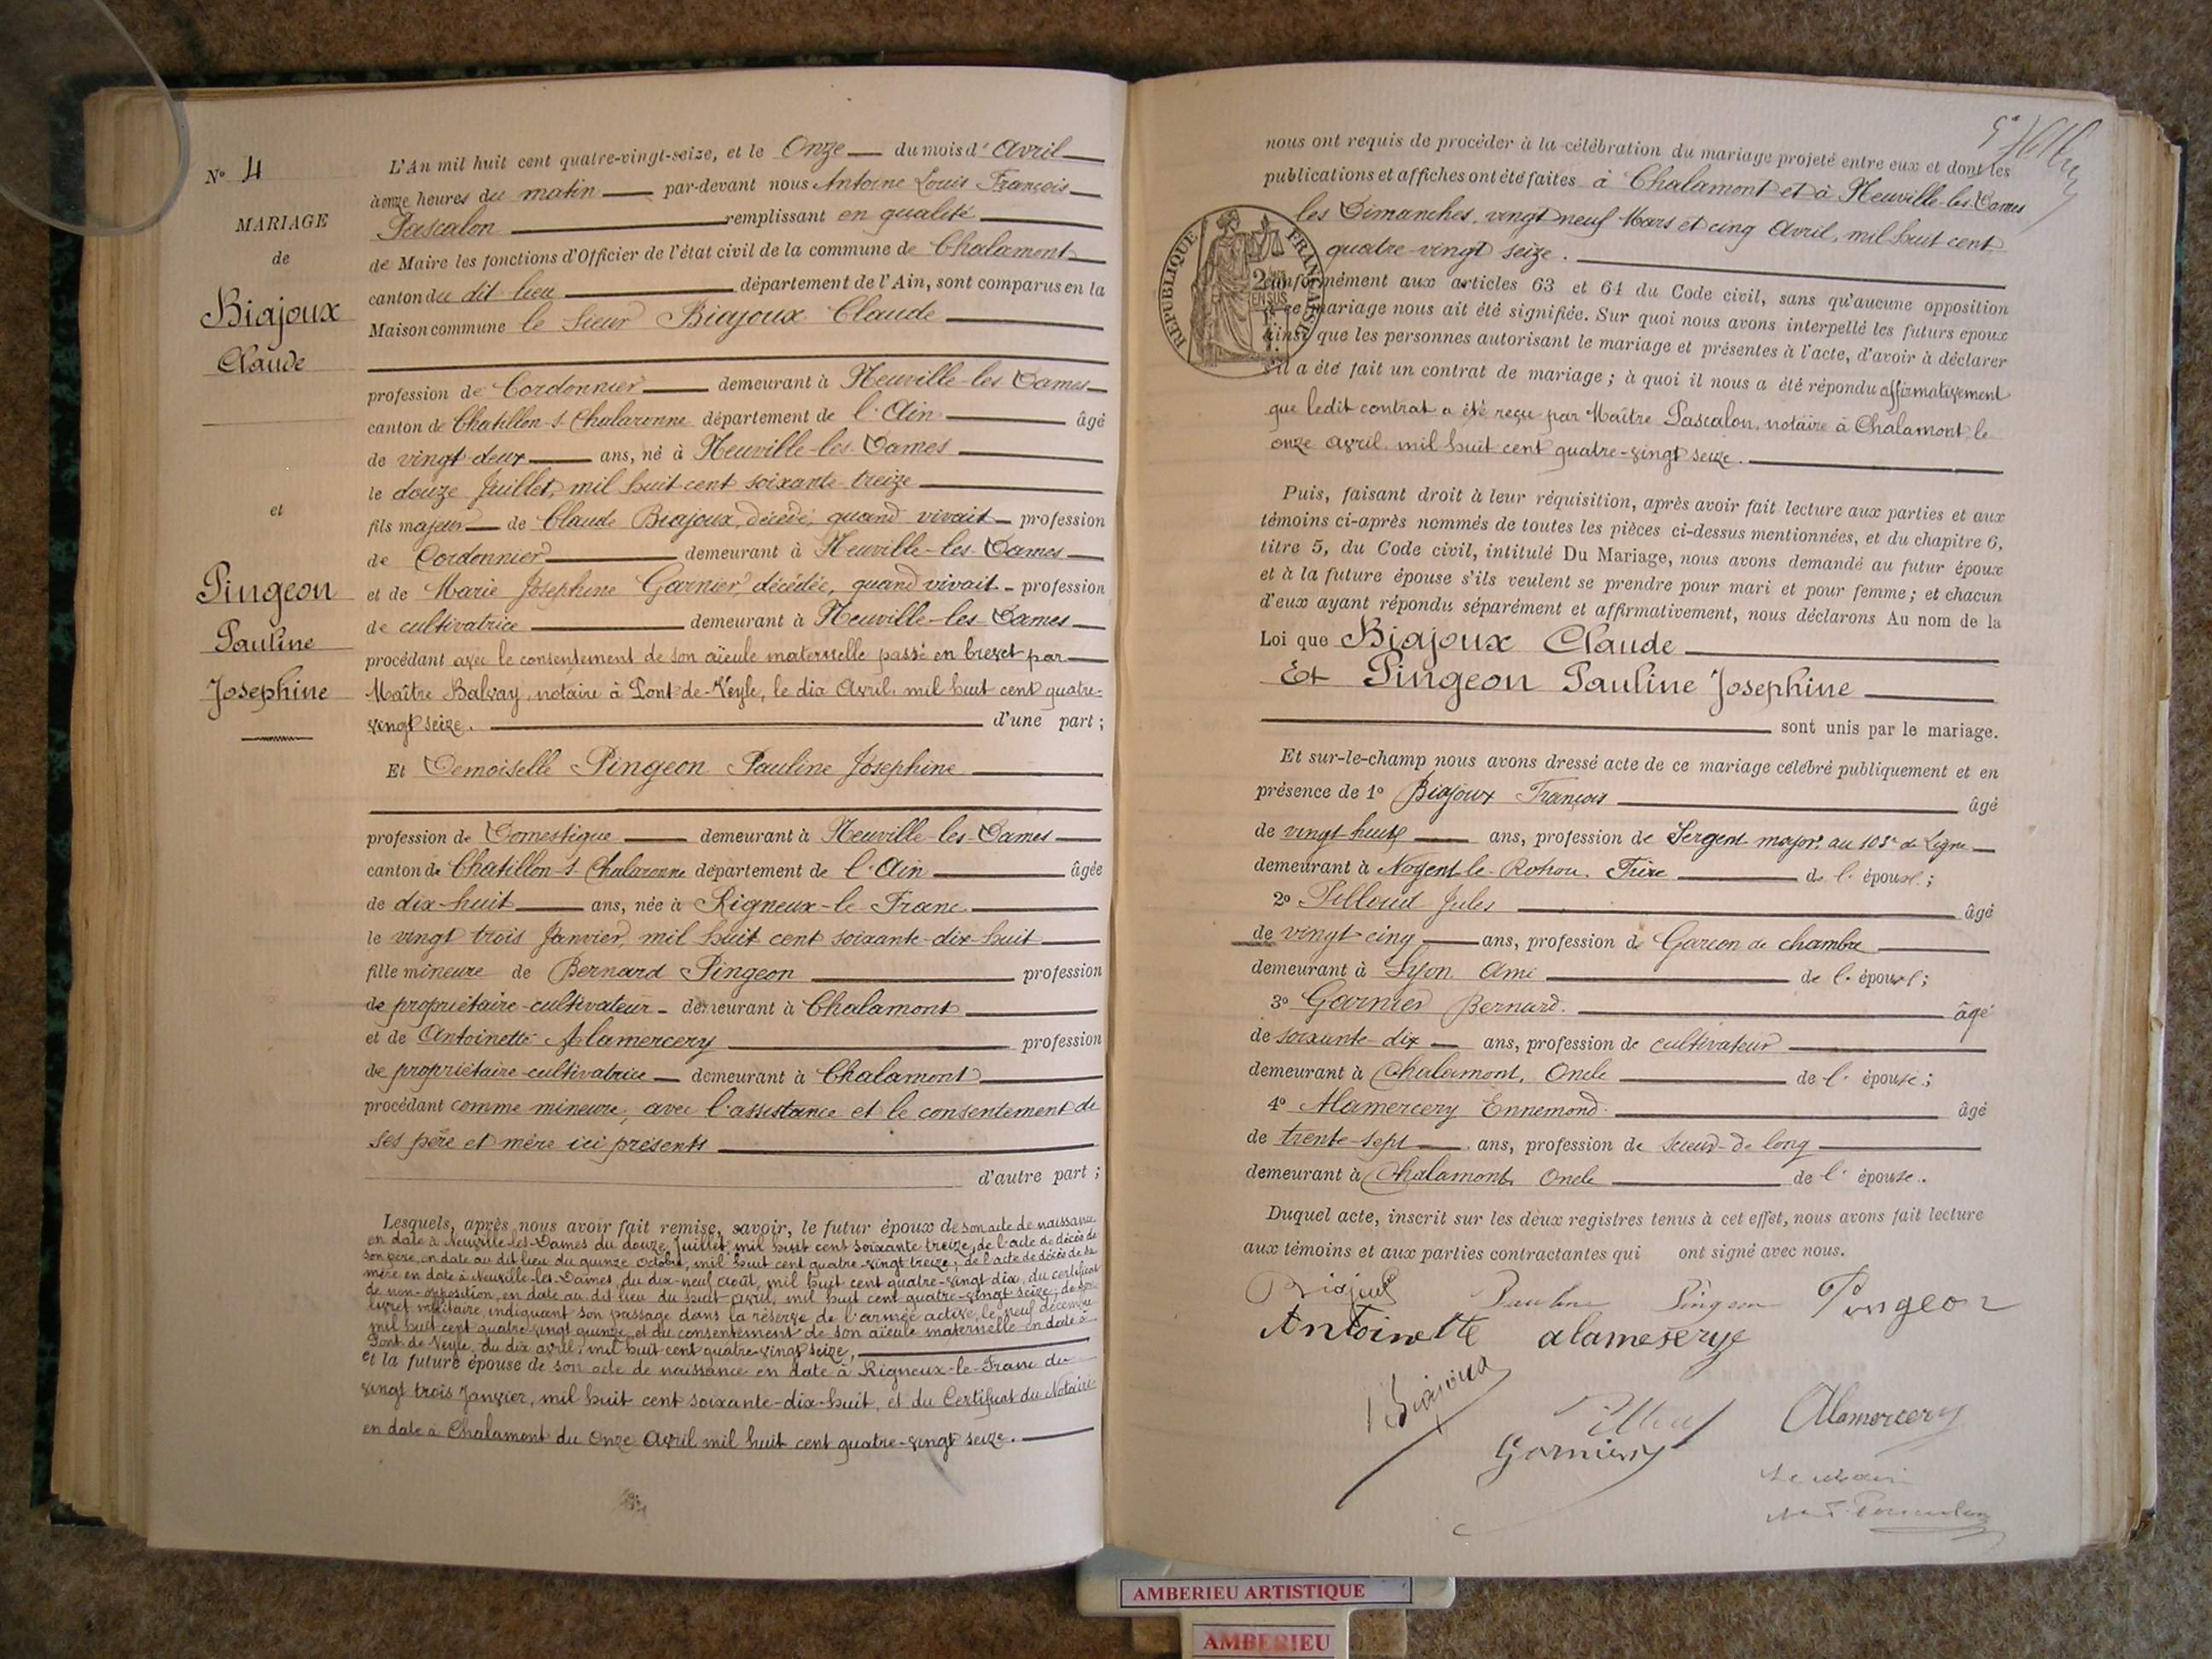 N° 4
MARIAGE
de
Biajoux
Claude
et
Pingeon
Pauline
Josephine
L'An mil huit cent quatre-vingt-seize, et le Onze du mois d'Avril
à onze heures du matin par-devant nous Antoine Louis François
Pascalon remplissant en qualité
de Maire les fonctions d'Officier de l'état civil de la commune de Chalamont
canton du dit lieu département de l'Ain, sont comparus en la
Maison commune le Sieur Biajoux Claude
profession de Cordonnier demeurant à Neuville-les-Dames
canton de Chatillon-s-Chalaronne département de l'Ain âgé
de vingt deux ans, né à Neuville-les-Dames
le douze Juillet, mil huit cent soixante-treize
fils majeur de Claude Biajoux, décédé, quand vivait profession
de Cordonnier demeurant à Neuville-les-Dames
et de Marie Josephine Garnier, décédée, quand vivait profession
de cultivatrice demeurant à Neuville-les-Dames
procédant avec le consentement de son aïeule maternelle passé en brevet par
Maître Balvay, notaire à Pont-de-Veyle, le dix Avril, mil huit cent quatre-
vingt seize. d'une part ;
Et Demoiselle Pingeon Pauline Josephine
profession de Domestique demeurant à Neuville-les-Dames
canton de Chatillon-s-Chalaronne département de l'Ain âgée
de dix-huit ans, née à Rigneux-le-Franc
le vingt trois Janvier, mil huit cent soixante-dix-huit
fille mineure de Bernard Pingeon profession
de propriétaire-cultivateur demeurant à Chalamont
et de Antoinette Alamercery profession
de propriétaire-cultivatrice demeurant à Chalamont
procédant comme mineure, avec l'assistance et le consentement de
ses père et mère ici présents
d'autre part ;
Lesquels, après nous avoir fait remise, savoir, le futur époux de son acte de naissance
en date à Neuville-les-Dames du douze Juillet mil huit cent soixante treize, de l'acte de décès de
son père, en date au dit lieu du quinze Octobre, mil huit cent quatre-vingt treize ; de l'acte de décès de sa
mère en date à Neuville-les-Dames, du dix-neuf août, mil huit cent quatre-vingt dix, du certificat
de non-opposition, en date au dit lieu du huit avril, mil huit cent quatre-vingt seize ; de son
livret militaire, indiquant son passage dans la réserve de l'armée active, le neuf décembre
mil huit cent quatre vingt quinze, et du consentement de son aïeule maternelle en date à
Pont de Veyle, du dix avril, mil huit cent quatre-vingt seize,
et la future épouse de son acte de naissance en date à Rigneux-le-Franc du
vingt trois Janvier, mil huit cent soixante-dix-huit, et du Certificat du Notaire
en date à Chalamont du Onze Avril mil huit cent quatre-vingt seize.
nous ont requis de procéder à la célébration du mariage projeté entre eux et dont les
publications et affiches ont été faites à Chalamont et à Neuville-les-Dames
les Dimanches, vingt neuf Mars et cinq Avril, mil huit cent
quatre-vingt seize.
REPUBLIQUE FRANÇAISE
conformément aux articles 63 et 64 du Code civil, sans qu'aucune opposition
à ce mariage nous ait été signifiée. Sur quoi nous avons interpellé les futurs époux
ainsi que les personnes autorisant le mariage et présentes à l'acte, d'avoir à déclarer
s'il a été fait un contrat de mariage ; à quoi il nous a été répondu affirmativement
que ledit contrat a été reçu par Maître Pascalon, notaire à Chalamont, le
onze avril mil huit cent quatre-vingt seize.
Puis, faisant droit à leur réquisition, après avoir fait lecture aux parties et aux
témoins ci-après nommés de toutes les pièces ci-dessus mentionnées, et du chapitre 6,
titre 5, du Code civil, intitulé Du Mariage, nous avons demandé au futur époux
et à la future épouse s'ils veulent se prendre pour mari et pour femme ; et chacun
d'eux ayant répondu séparément et affirmativement, nous déclarons Au nom de la
Loi que Biajoux Claude
Et Pingeon Pauline Josephine
sont unis par le mariage.
Et sur-le-champ nous avons dressé acte de ce mariage célébré publiquement et en
présence de 1° Biajoux François âgé
de vingt huit ans, profession de Sergent major au 103e de Ligne
demeurant à Nogent-le-Rotrou. Frère de l' époux ;
2° Pilloud Jules âgé
de vingt-cinq ans, profession de Garcon de chambre
demeurant à Lyon Ami de l' époux ;
3° Garnier Bernard. âgé
de soixante-dix ans, profession de cultivateur
demeurant à Chalamont, Oncle de l' épouse ;
4° Alamercery Ennemond. âgé
de trente-sept ans, profession de scieur-de long
demeurant à Chalamont, Oncle de l' épouse.
Duquel acte, inscrit sur les deux registres tenus à cet effet, nous avons fait lecture
aux témoins et aux parties contractantes qui ont signé avec nous.
Pauline Pingeon Pingeon
Antoinette alameserye
Alamercery
Le maire
AMBERIEU ARTISTIQUE
AMBERIEU